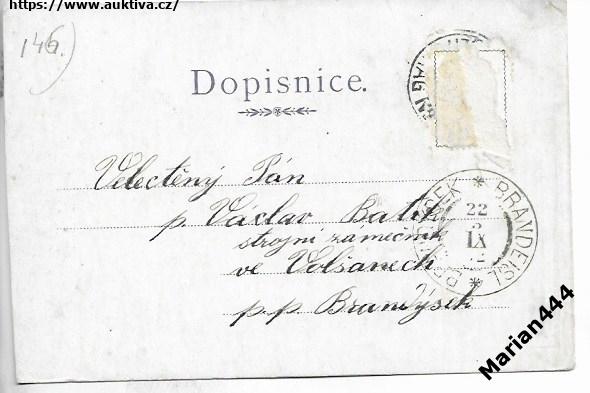 https://www.auktiva.cz/
146.)
Dopisnice.
Velectěný Pán
p. Václav
strojní zámečník
ve Volšanech
p. p. Brandýsek
BRANDEISL * BRANDÝSEK *
22
IX
Marian444